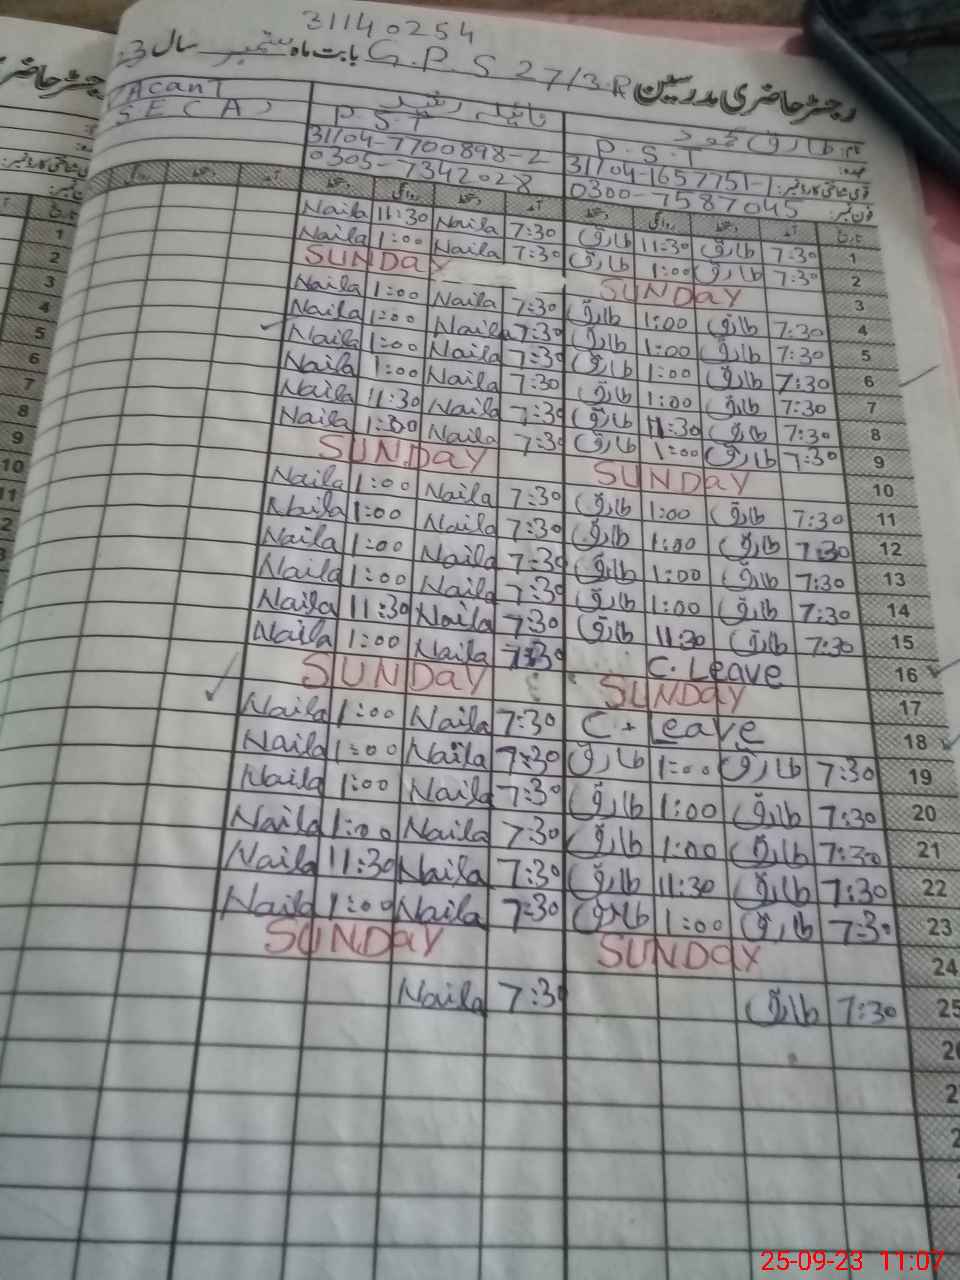 31140254
رجسٹر حاضری مدرسین G.P.S 27/3.R بابت ماہ ستمبر سال 3
نام: طارق محمود نائیلہ رشید Vacant
P.S.T P.S.T S.E(CA)
قومی شناختی کارڈ نمبر: 31104-1657751-1 31104-7700898-2
فون نمبر: 0300-7587045 0305-7342028
تاریخ آمد دستخط روانگی دستخط آمد دستخط روانگی دستخط آمد دستخط روانگی
1 7:30 طارق 11:30 طارق 7:30 Naila 11:30 Naila
2 7:30 طارق 1:00 طارق 7:30 Naila 1:00 Naila
3 SUNDAY SUNDAY
4 7:30 طارق 1:00 طارق 7:30 Naila 1:00 Naila
5 7:30 طارق 1:00 طارق 7:30 Naila 1:00 Naila
6 7:30 طارق 1:00 طارق 7:30 Naila 1:00 Naila
7 7:30 طارق 1:00 طارق 7:30 Naila 1:00 Naila
8 7:30 طارق 11:30 طارق 7:30 Naila 11:30 Naila
9 7:30 طارق 1:00 طارق 7:30 Naila 1:30 Naila
10 SUNDAY SUNDAY
11 7:30 طارق 1:00 طارق 7:30 Naila 1:00 Naila
12 7:30 طارق 1:00 طارق 7:30 Naila 1:00 Naila
13 7:30 طارق 1:00 طارق 7:30 Naila 1:00 Naila
14 7:30 طارق 1:00 طارق 7:30 Naila 1:00 Naila
15 7:30 طارق 11:30 طارق 7:30 Naila 11:30 Naila
16 C.Leave 7:30 Naila 1:00 Naila
17 SUNDAY SUNDAY
18 C.Leave 7:30 Naila 1:00 Naila
19 7:30 طارق 1:00 طارق 7:30 Naila 1:00 Naila
20 7:30 طارق 1:00 طارق 7:30 Naila 1:00 Naila
21 7:30 طارق 1:00 طارق 7:30 Naila 1:00 Naila
22 7:30 طارق 11:30 طارق 7:30 Naila 11:30 Naila
23 7:30 طارق 1:00 طارق 7:30 Naila 1:00 Naila
24 SUNDAY SUNDAY
25 7:30 طارق 7:30 Naila
25-09-23 11:07